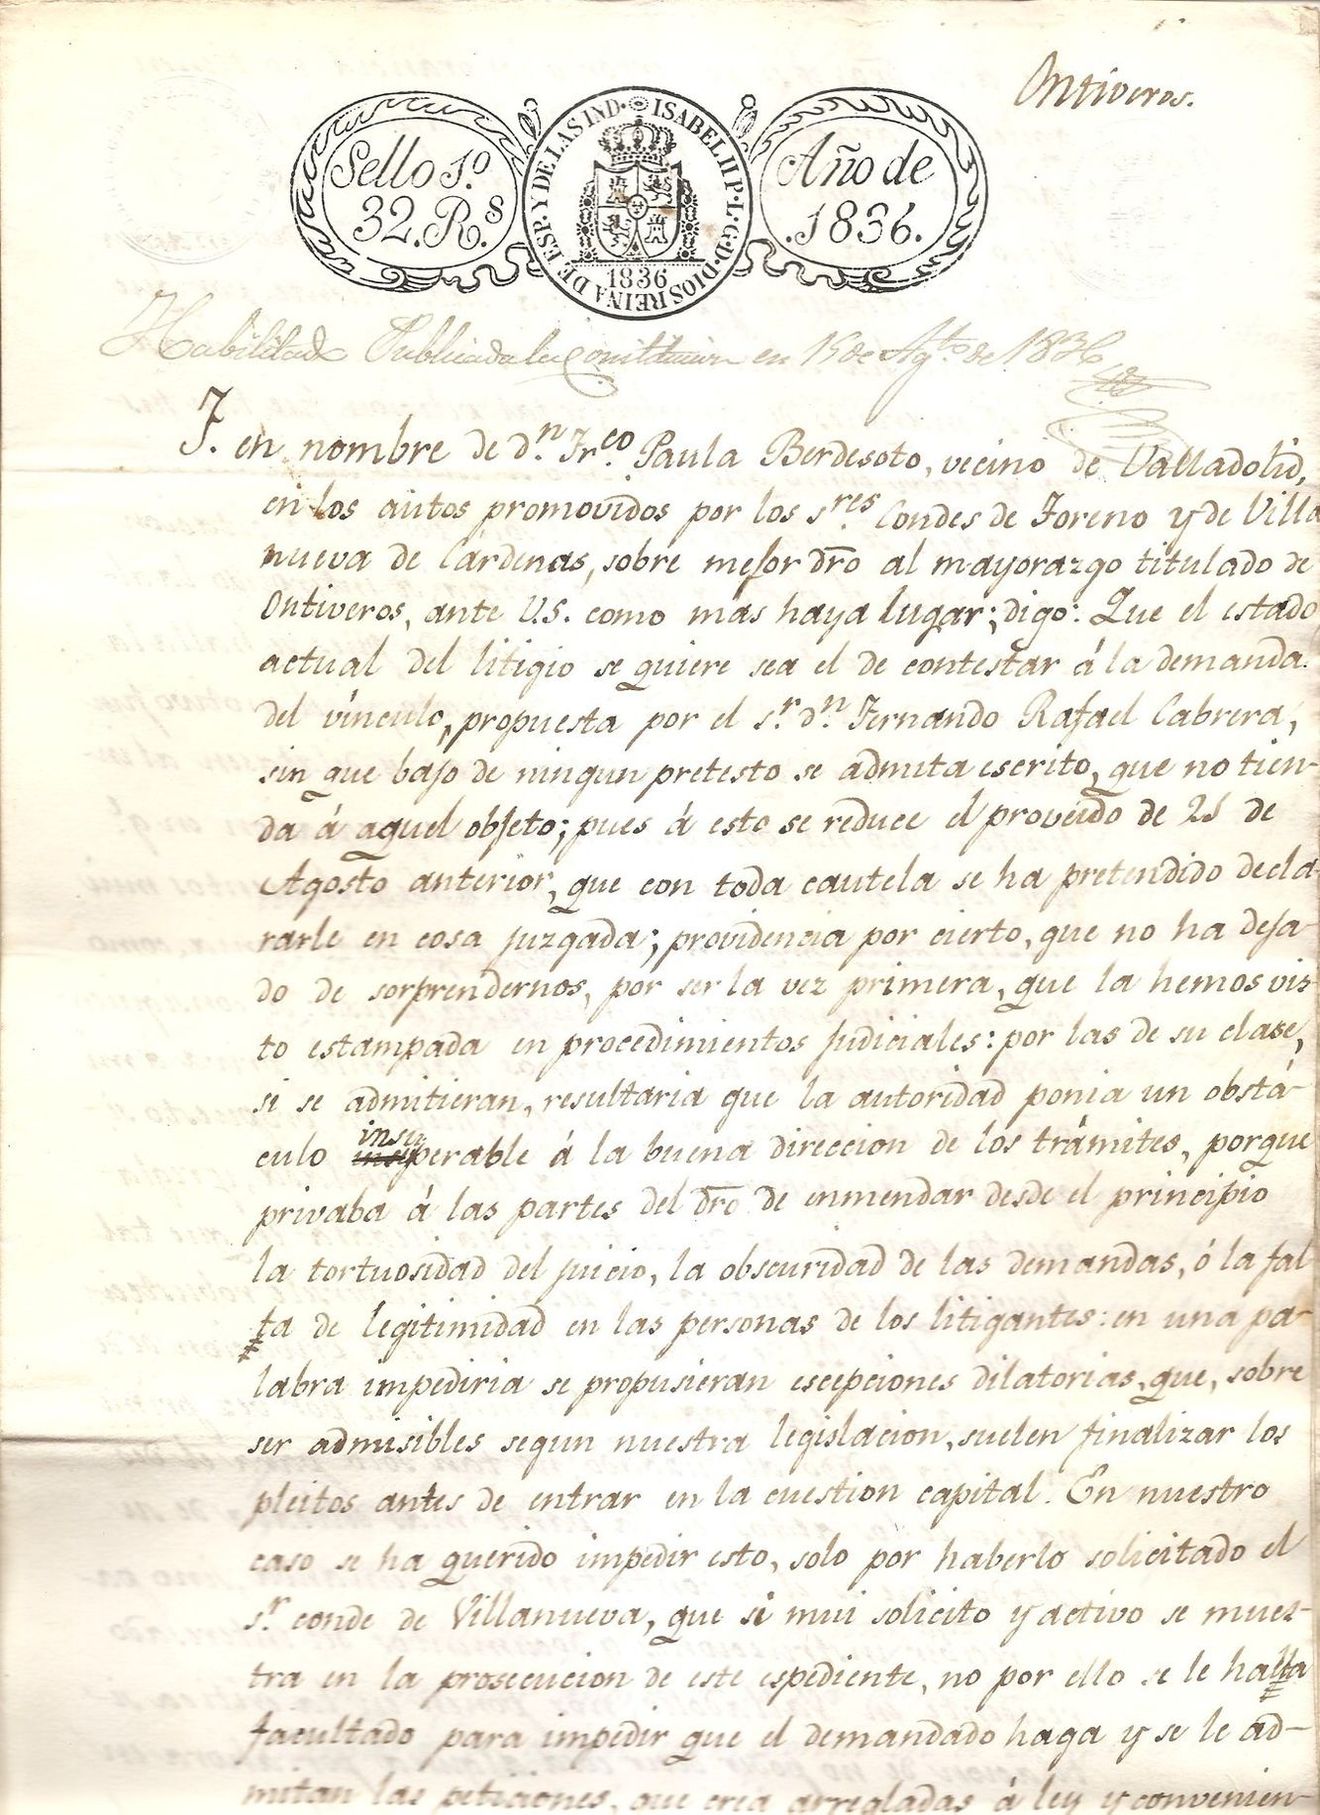 Ontiveros.
Sello 1.º
32.R.s
ISABEL II P.L.G.D.DIOS REINA DE ESP.Y DE LAS IND.
1836
Año de
.1836.
Habilitado Publicada la Constitucion en 15 de Agto de 1836
F. en nombre de d.n Fr.co Paula Berdesoto, vecino de Valladolid,
en los autos promovidos por los s.res Condes de Toreno y de Villa
nueva de Cárdenas, sobre mejor dro al mayorazgo titulado de
Ontiveros, ante V.S. como mas haya lugar; digo: Que el estado
actual del litigio se quiere sea el de contestar á la demanda
del vínculo, propuesta por el s.r d.n Fernando Rafael Cabrera,
sin que bajo de ningun pretesto se admita escrito, que no tien-
da á aquel objeto; pues á esto se reduce el proveido de 21 de
Agosto anterior, que con toda cautela se ha pretendido decla-
rarle en cosa juzgada; providencia por cierto, que no ha deja-
do de sorprendernos, por ser la vez primera, que la hemos vis-
to estampada en procedimientos judiciales: por las de su clase,
si se admitieran, resultaria que la autoridad ponia un obstá-
culo insuperable á la buena direccion de los trámites, porque
privaba á las partes del dro de enmendar desde el principio
la tortuosidad del juicio, la obscuridad de las demandas, ó la fal-
ta de legitimidad en las personas de los litigantes: en una pa-
labra impediria se propusieran escepciones dilatorias, que, sobre
ser admisibles segun nuestra legislacion, suelen finalizar los
pleitos antes de entrar en la cuestion capital. En nuestro
caso se ha querido impedir esto, solo por haberlo solicitado el
s.r conde de Villanueva, que si mui solicito y activo se mues-
tra en la prosecucion de este espediente, no por ello se le halla
facultado para impedir que el demandado haga y se le ad-
mitan las peticiones, que crea arregladas á ley y convenien-